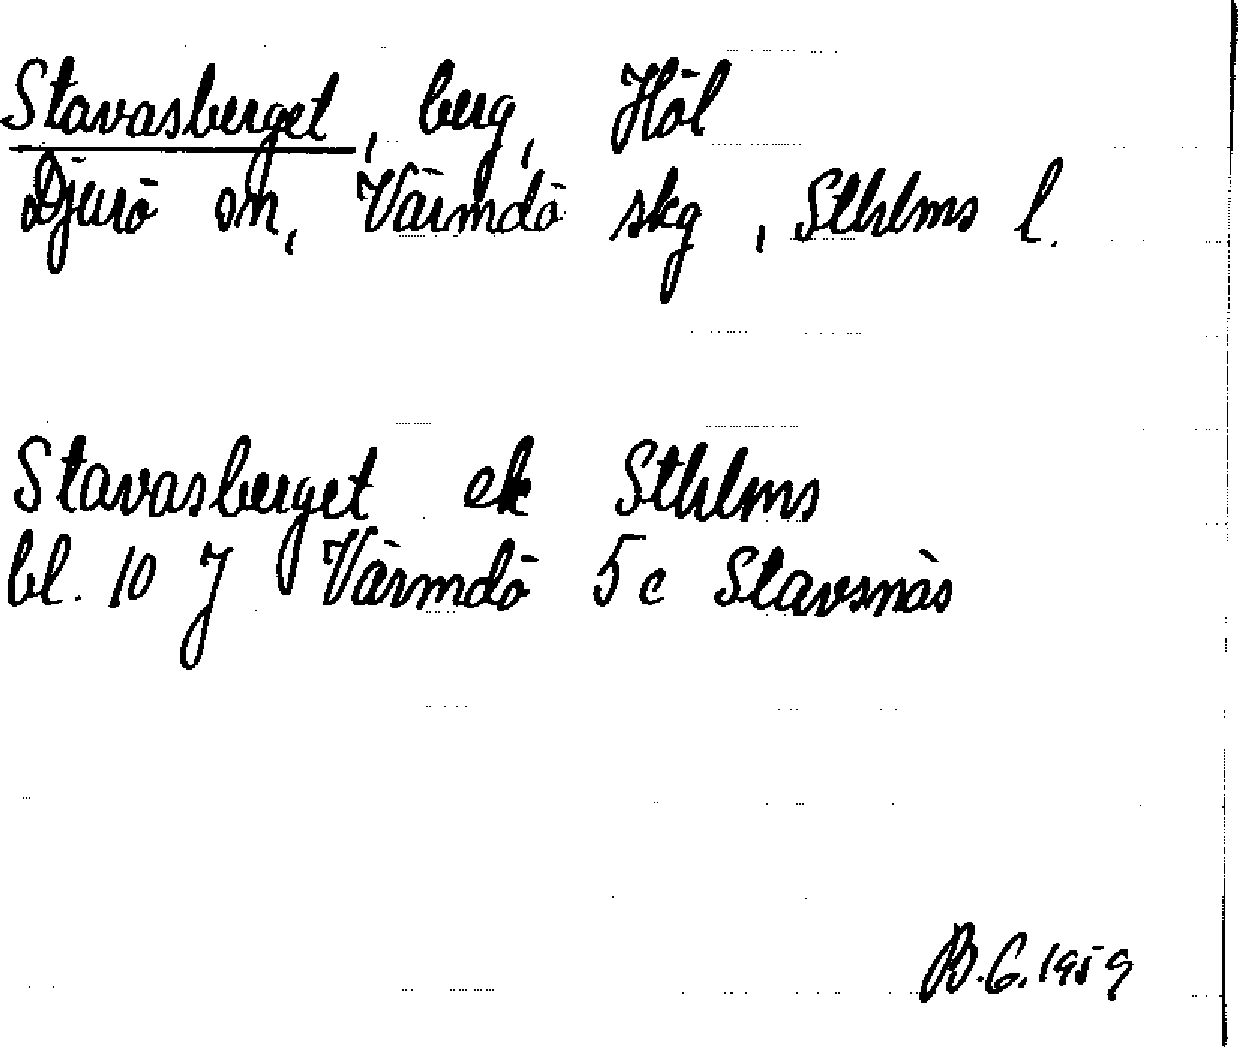 Stavasberget, berg, Höl
Djurö sn, Värmdö skg, Sthlms l.
Stavasberget ek Sthlms
bl. 10 J Värmdö 5c Stavsnäs
B.G. 1959